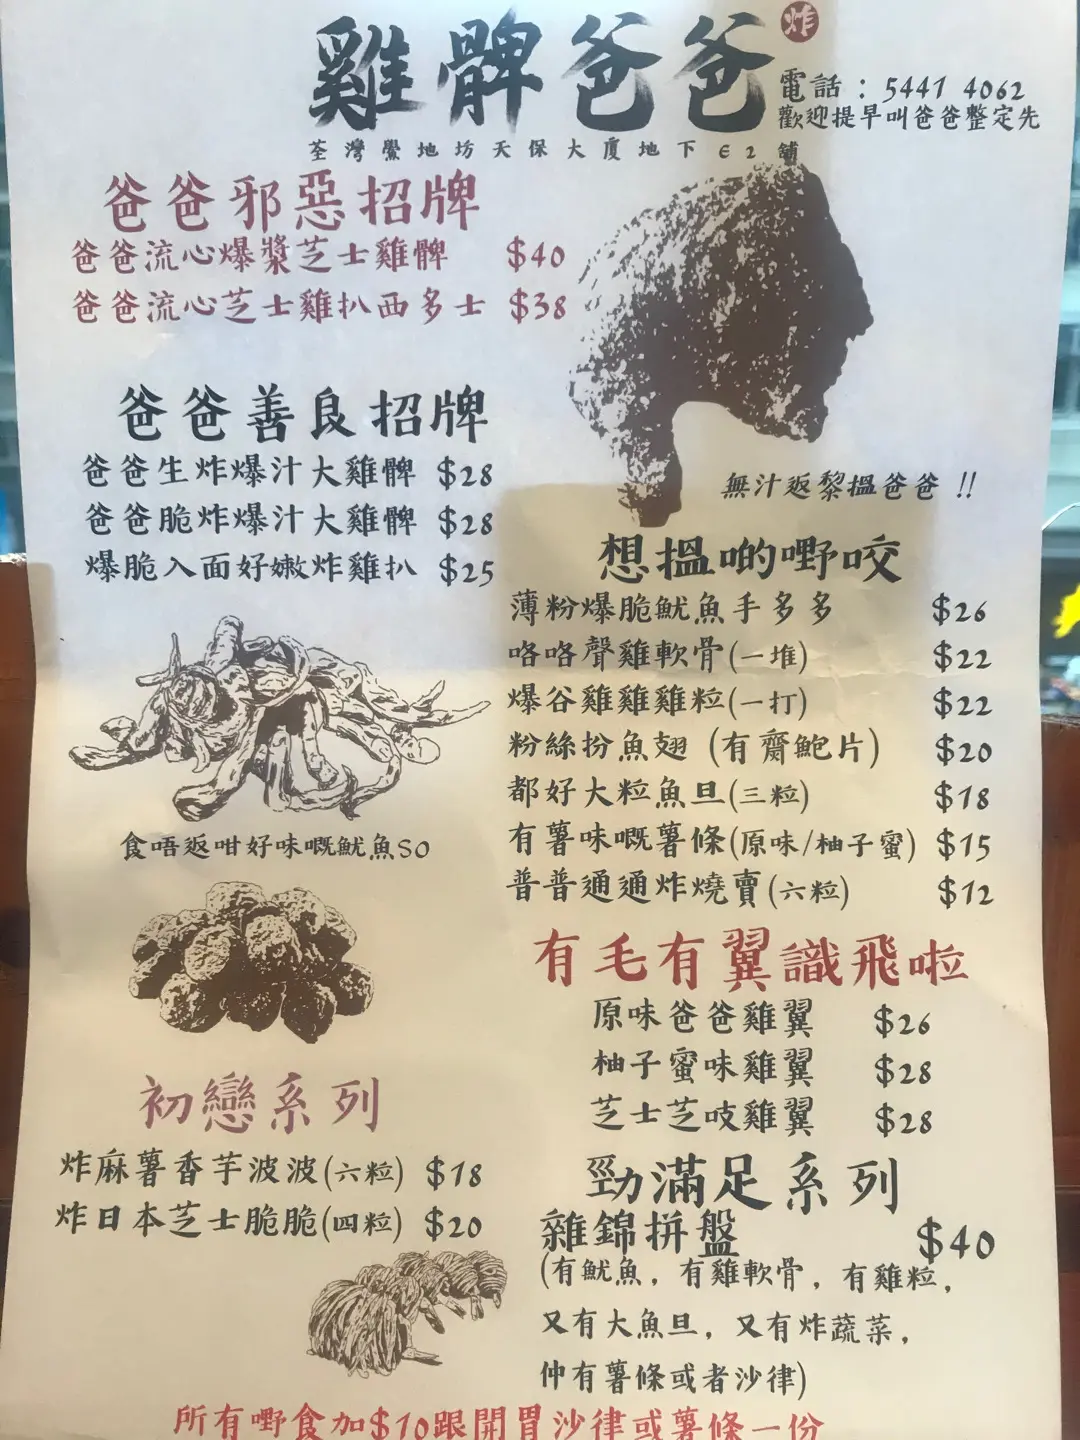 雞髀爸爸 炸
電話：5441 4062
歡迎提早叫爸爸整定先
荃灣鱟地坊天保大厦地下E2舖
爸爸邪惡招牌
爸爸流心爆漿芝士雞髀 $40
爸爸流心芝士雞扒西多士 $38
爸爸善良招牌
爸爸生炸爆汁大雞髀 $28
爸爸脆炸爆汁大雞髀 $28
爆脆入面好嫩炸雞扒 $25
無汁返黎搵爸爸 !!
食唔返咁好味嘅魷魚SO
初戀系列
炸麻薯香芋波波(六粒) $18
炸日本芝士脆脆(四粒) $20
想搵啲嘢咬
薄粉爆脆魷魚手多多 $26
咯咯聲雞軟骨(一堆) $22
爆谷雞雞雞粒(一打) $22
粉絲扮魚翅 (有齋鮑片) $20
都好大粒魚旦(三粒) $18
有薯味嘅薯條(原味/柚子蜜) $15
普普通通炸燒賣(六粒) $12
有毛有翼識飛啦
原味爸爸雞翼 $26
柚子蜜味雞翼 $28
芝士芝吱雞翼 $28
勁滿足系列
雜錦拼盤 $40
(有魷魚，有雞軟骨，有雞粒，
又有大魚旦，又有炸蔬菜，
仲有薯條或者沙律)
所有嘢食加$10跟開胃沙律或薯條一份